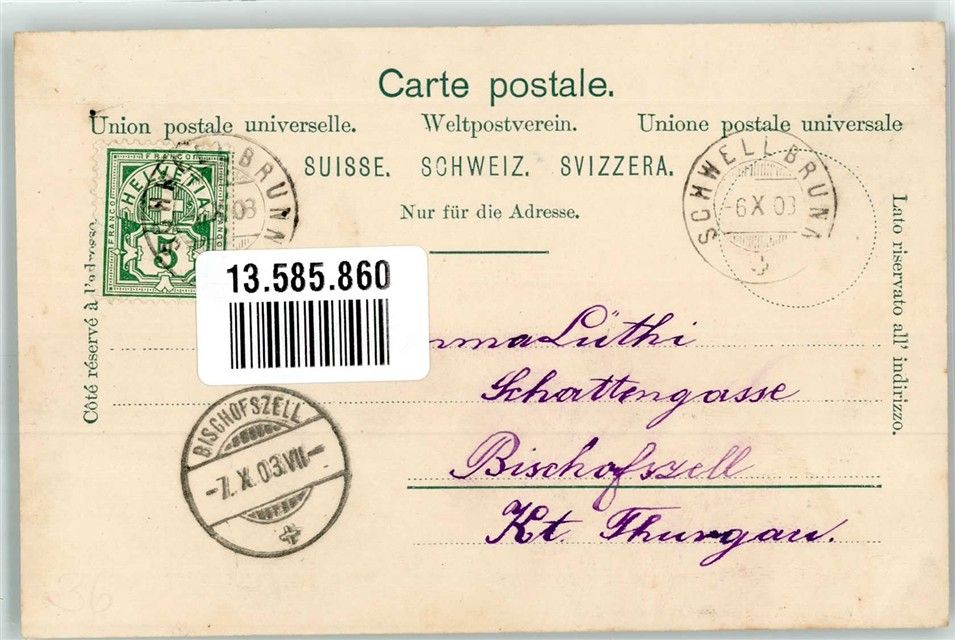 Carte postale.
Union postale universelle. Weltpostverein. Unione postale universale
SUISSE. SCHWEIZ. SVIZZERA.
Nur für die Adresse.
Côté réservé à l'adresse
Lato riservato all' indirizzo.
FRANCO
HELVETIA
FRANCO
5
BRUNN
03
SCHWELLBRUNN
-6 X 03
13.585.860
Lüthi
Schattengasse
Bischofszell
Kt. Thurgau.
BISCHOFSZELL
-7. X. 03.VII-
36